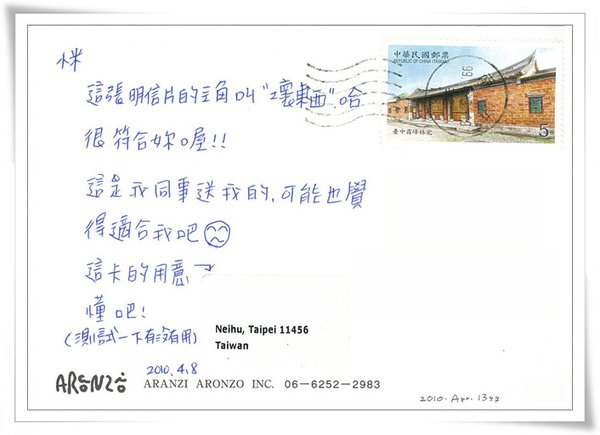 這張明信片的主角叫"壞東西".哈
很符合妳喔!!
這是我同事送我的,可能也覺
得適合我吧
這卡的用意
懂吧!
(測試一下有沒有用)
中華民國郵票
REPUBLIC OF CHINA (TAIWAN)
臺中霧峰林宅
5
Neihu, Taipei 11456
Taiwan
2010.4.8
ARONZO
ARANZI ARONZO INC. 06-6252-2983
2010. Apr. 13